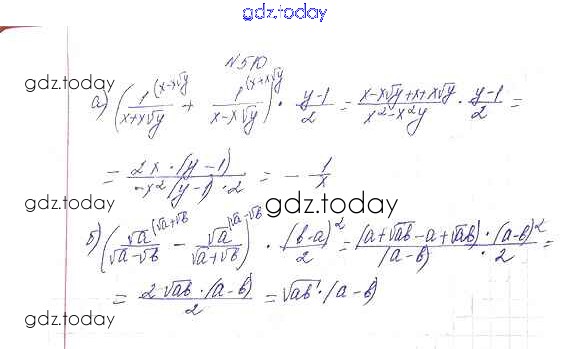 gdz.today
№510
gdz.today
а) (1/(x+x√y) ^(x-x√y) + 1/(x-x√y) ^(x+x√y)) · (y-1)/2 = (x-x√y+x+x√y)/(x²-x²y) · (y-1)/2 =
= (2x·(y-1))/(-x²(y-1)·2) = -1/x
gdz.today
gdz.today
б) (√a/(√a-√b) ^(√a+√b) - √a/(√a+√b) ^(√a-√b)) · (b-a)²/2 = ((a+√ab-a+√ab)·(a-b)²)/((a-b)·2) =
gdz.today
= (2√ab·(a-b))/2 = √ab·(a-b)
gdz.today
gdz.today